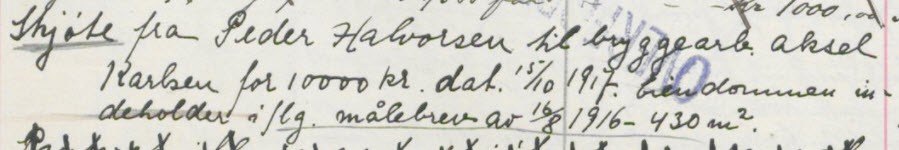 kr 1000,00
Skjöte fra Peder Halvorsen til bryggearb. Aksel
Karlsen for 10000 kr. dat. 15/10 1917. Eiendommen in-
deholder iflg. målebrev av 16/8 1916 - 430 m².